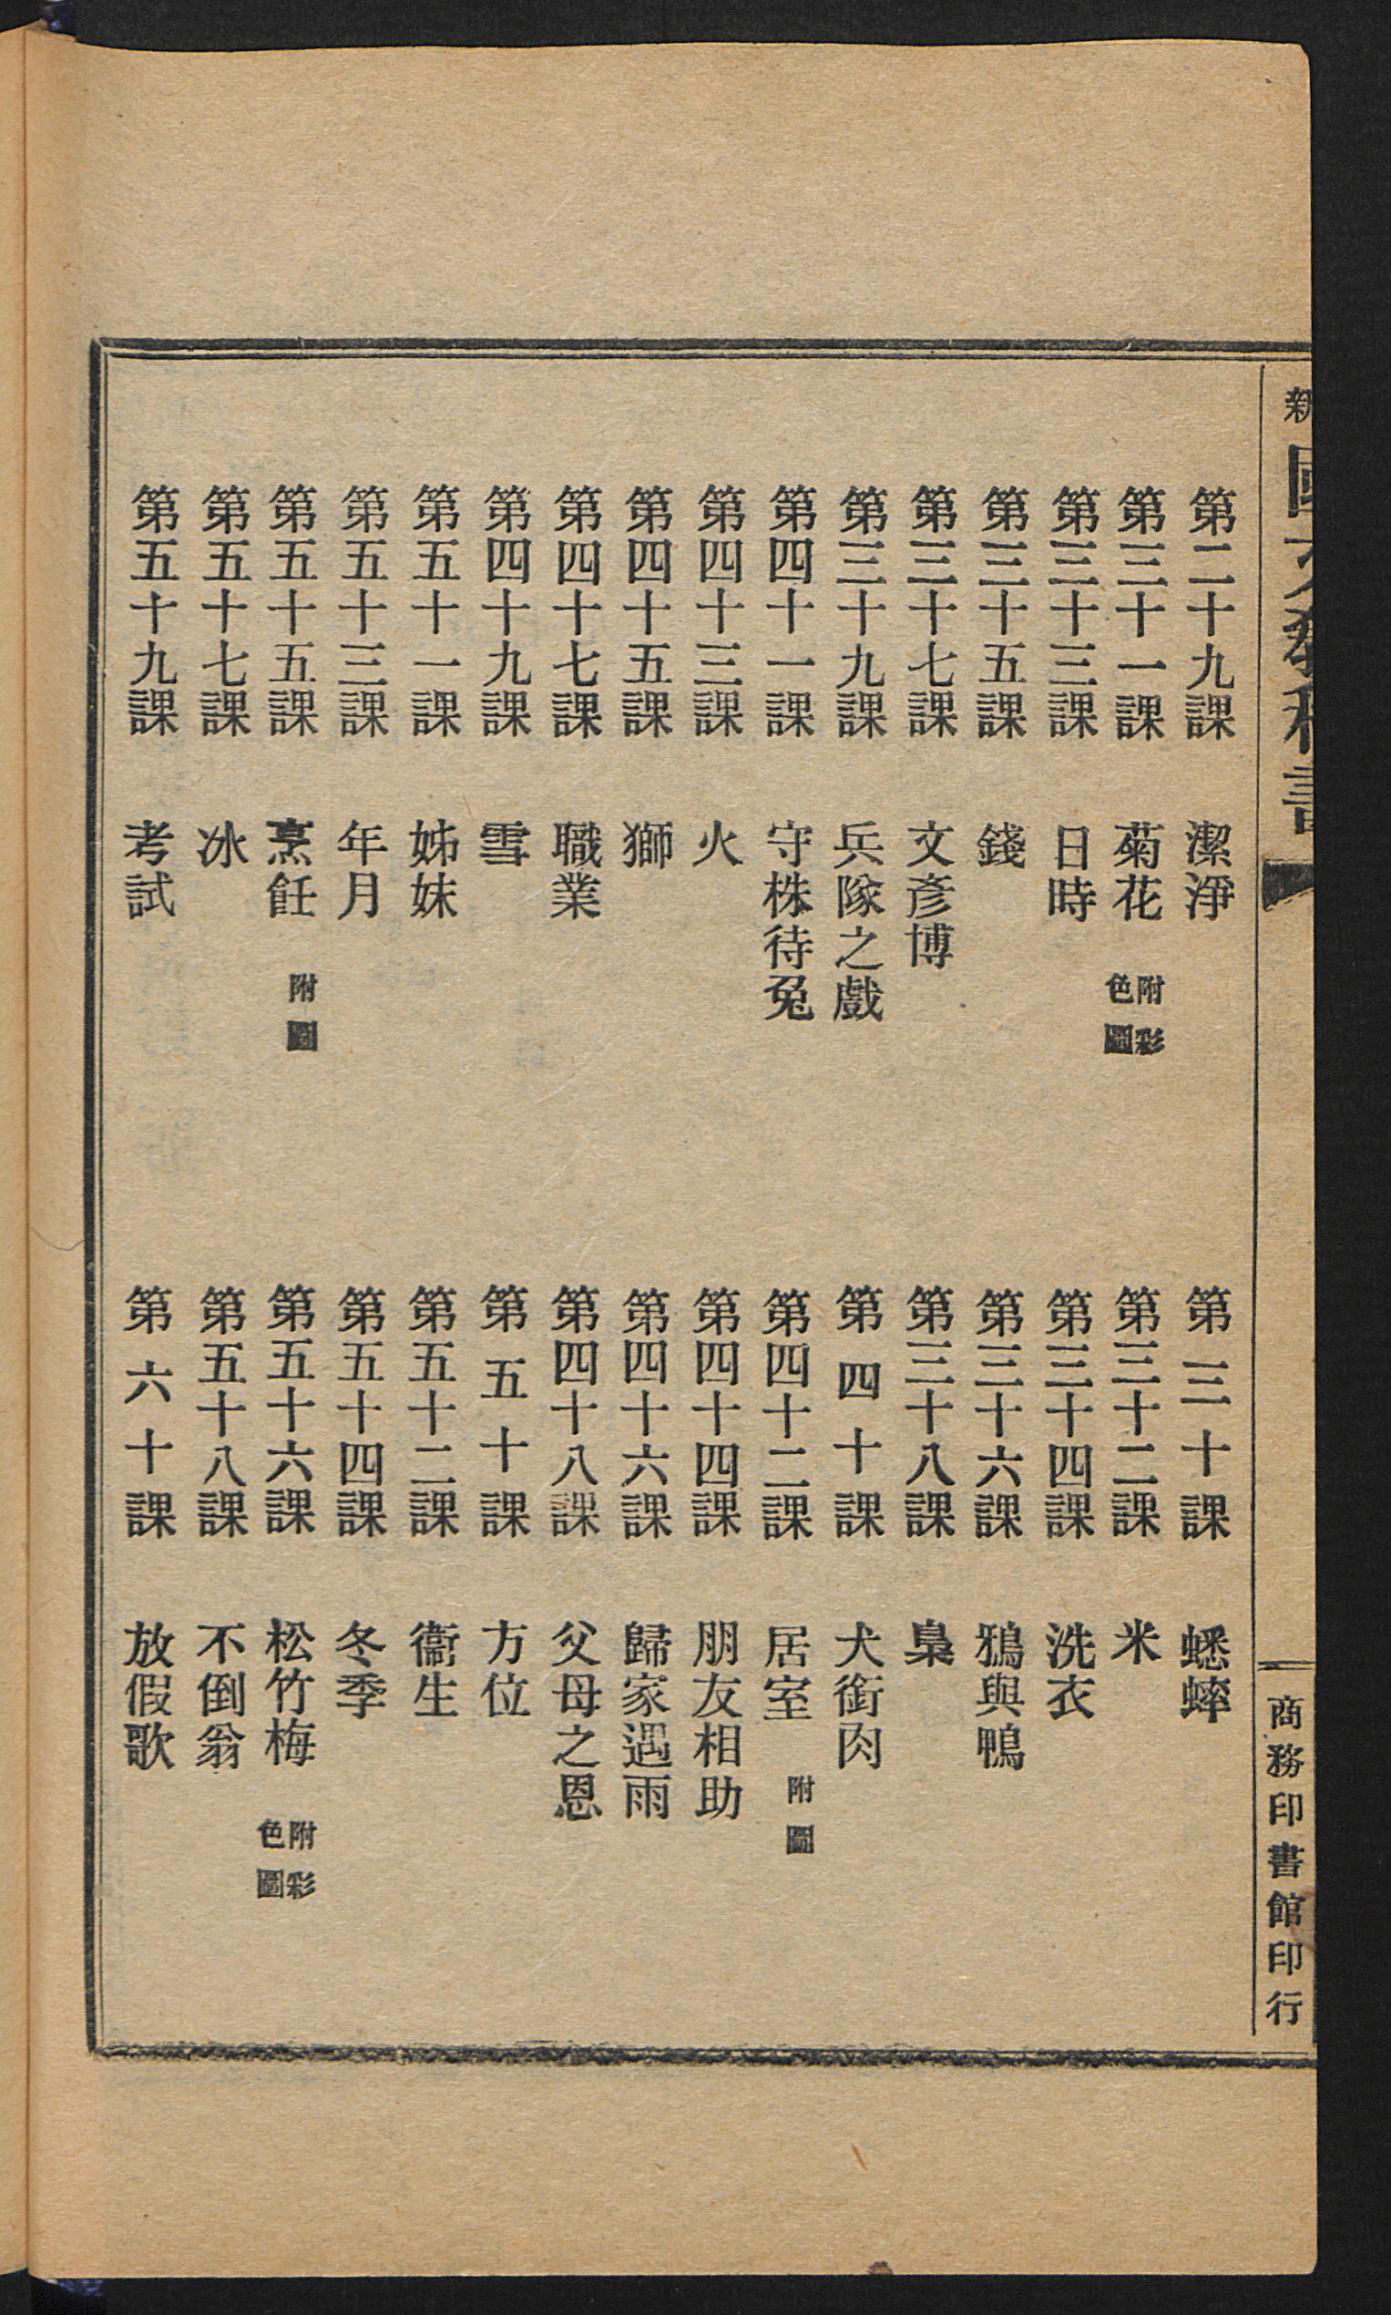 新國文教科書
商務印書館印行
第二十九課　潔淨
第三十課　蟋蟀
第三十一課　菊花　附彩色圖
第三十二課　米
第三十三課　日時
第三十四課　洗衣
第三十五課　錢
第三十六課　鴉與鴨
第三十七課　文彥博
第三十八課　梟
第三十九課　兵隊之戲
第四十課　犬銜肉
第四十一課　守株待兔
第四十二課　居室　附圖
第四十三課　火
第四十四課　朋友相助
第四十五課　獅
第四十六課　歸家遇雨
第四十七課　職業
第四十八課　父母之恩
第四十九課　雪
第五十課　方位
第五十一課　姊妹
第五十二課　衞生
第五十三課　年月
第五十四課　冬季
第五十五課　烹飪　附圖
第五十六課　松竹梅　附彩色圖
第五十七課　冰
第五十八課　不倒翁
第五十九課　考試
第六十課　放假歌